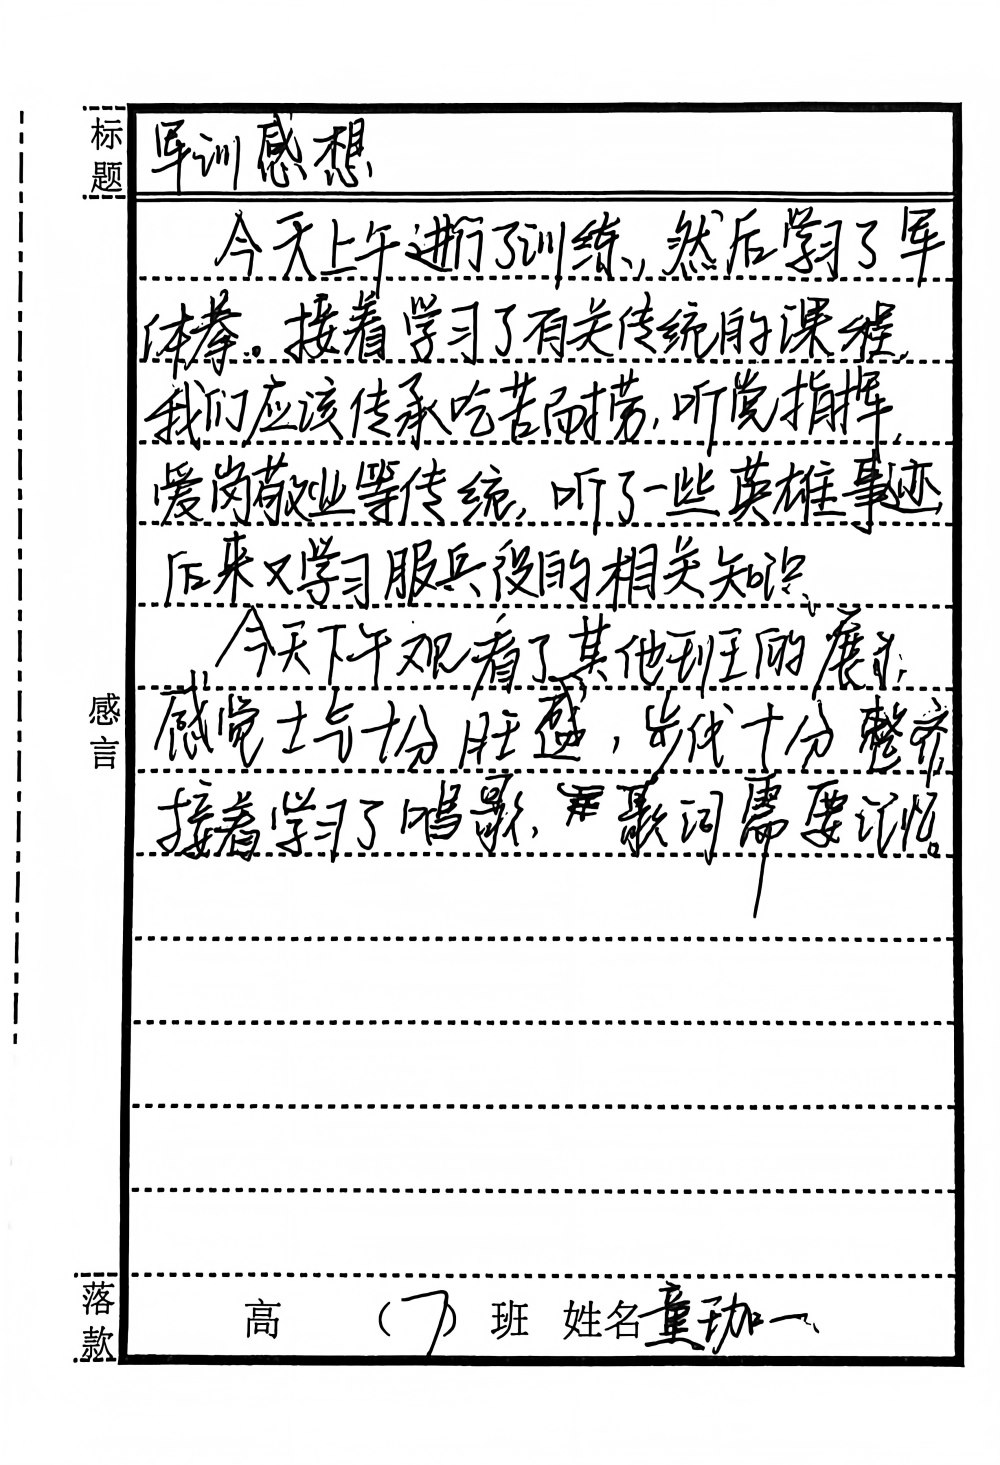 标题 军训感想
今天上午进行了训练,然后学习了军
体拳。接着学习了有关传统的课程,
我们应该传承吃苦耐劳,听党指挥,
爱岗敬业等传统,听了一些英雄事迹,
后来又学习服兵役的相关知识、
今天下午观看了其他班的展示,
感觉士气十分旺盛,步伐十分整齐,
接着学习了唱歌,歌词需要记忆。
感言
落款 高 (7) 班 姓名 童珈一